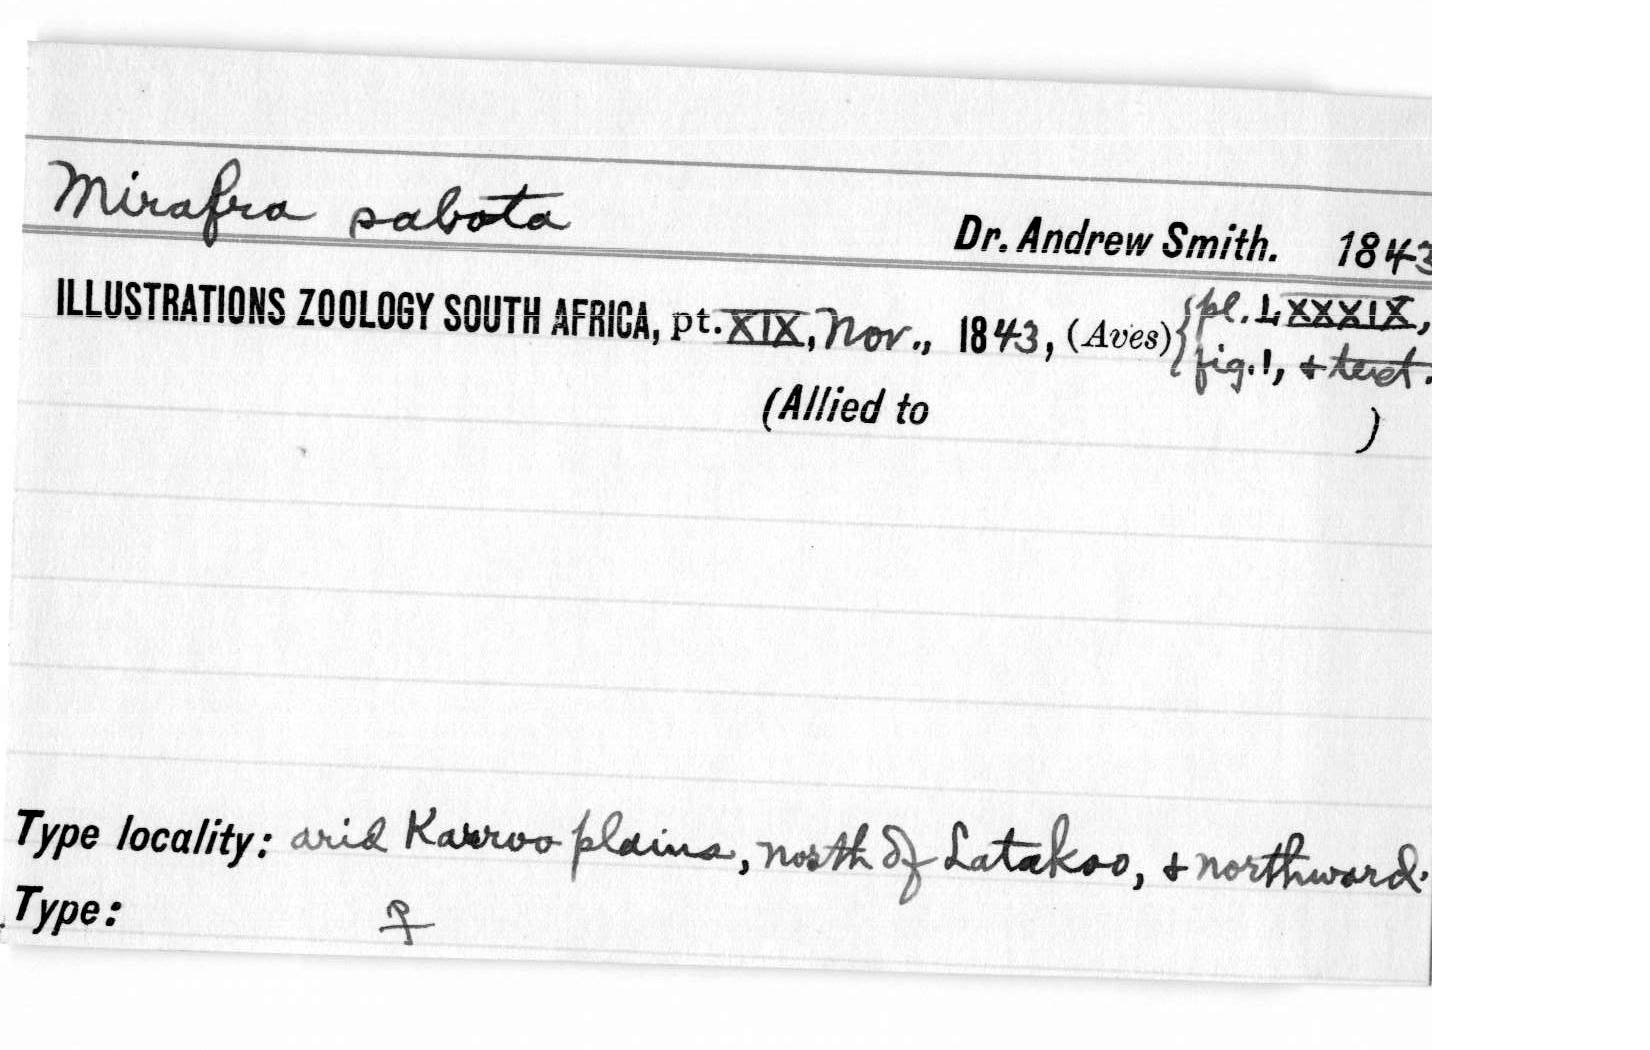 Mirafra sabota
Dr. Andrew Smith. 1843
ILLUSTRATIONS ZOOLOGY SOUTH AFRICA, pt. XIX, Nov., 1843, (Aves) { pl. LXXXIX,
fig. 1, & text.
(Allied to )
Type locality: arid Karroo plains, north of Latakoo, & northward.
Type: ♀